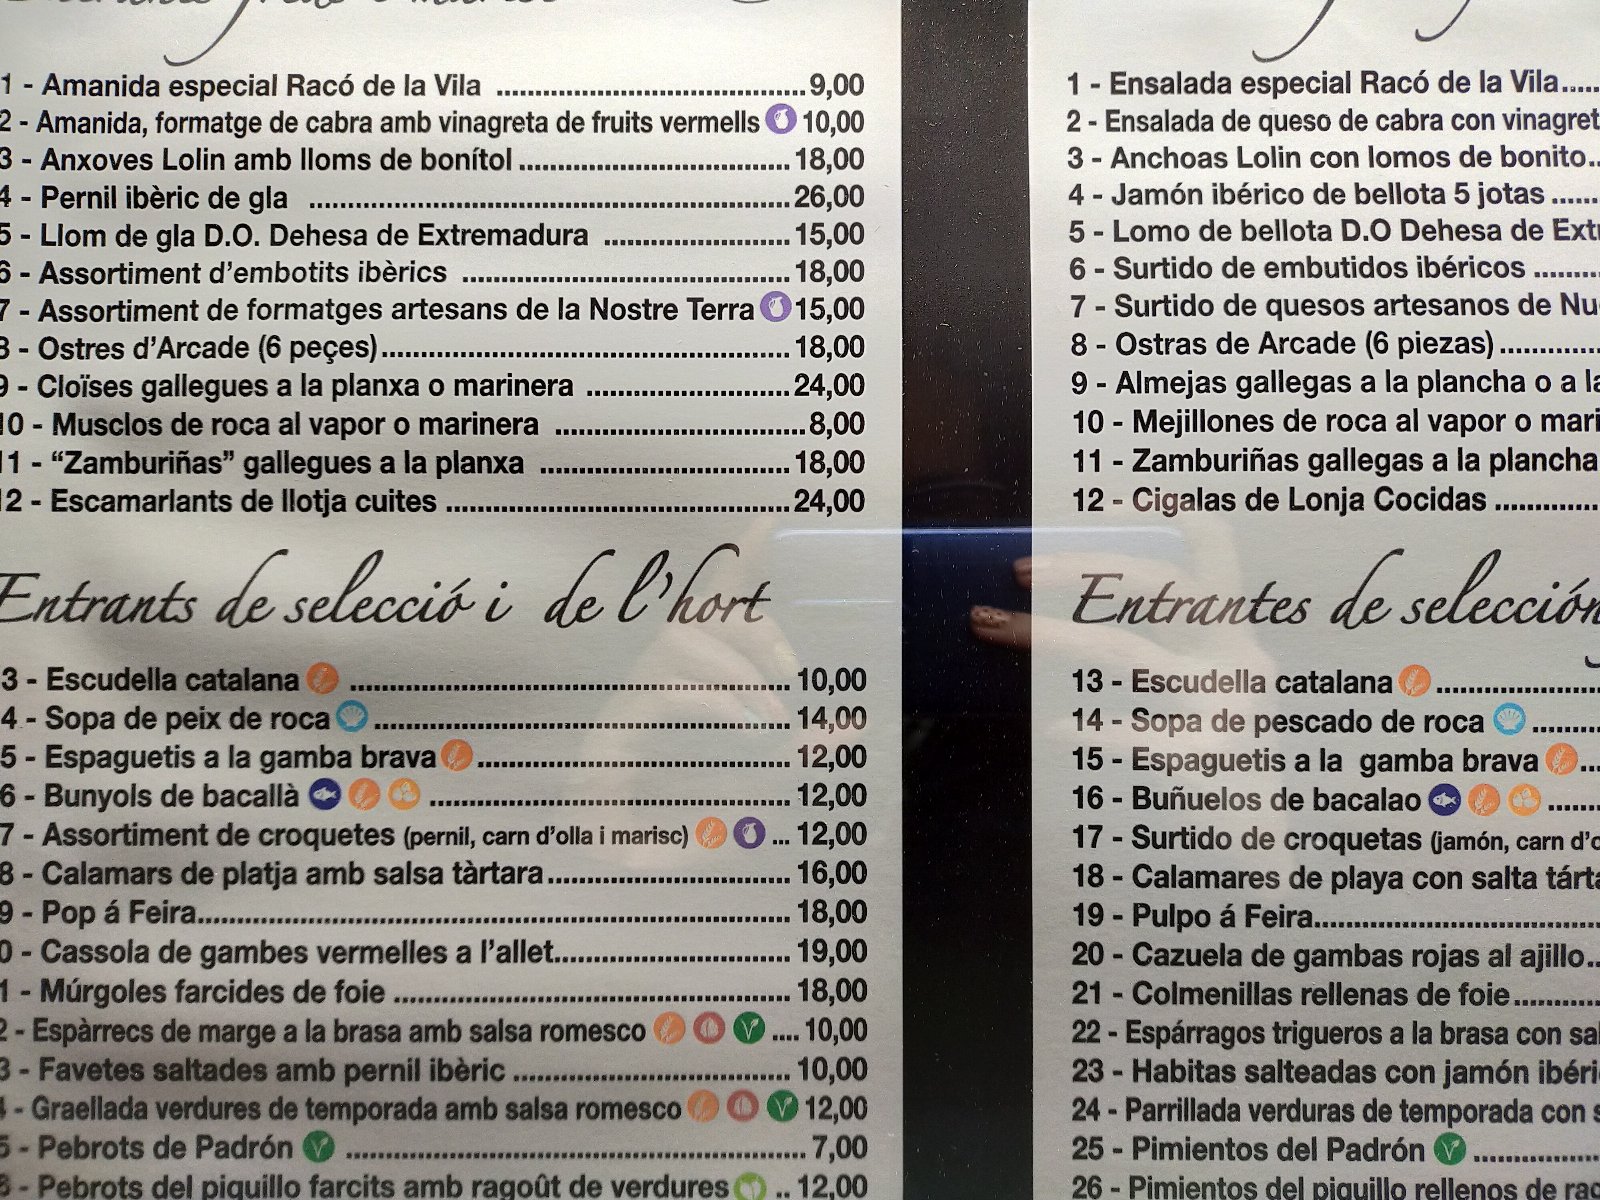 1 - Amanida especial Racó de la Vila ........ 9,00
2 - Amanida, formatge de cabra amb vinagreta de fruits vermells 10,00
3 - Anxoves Lolin amb lloms de bonítol ........ 18,00
4 - Pernil ibèric de gla ........ 26,00
5 - Llom de gla D.O. Dehesa de Extremadura ........ 15,00
6 - Assortiment d'embotits ibèrics ........ 18,00
7 - Assortiment de formatges artesans de la Nostre Terra 15,00
8 - Ostres d'Arcade (6 peçes) ........ 18,00
9 - Cloïses gallegues a la planxa o marinera ........ 24,00
10 - Musclos de roca al vapor o marinera ........ 8,00
11 - “Zamburiñas” gallegues a la planxa ........ 18,00
12 - Escamarlants de llotja cuites ........ 24,00
Entrants de selecció i de l'hort
3 - Escudella catalana ........ 10,00
4 - Sopa de peix de roca ........ 14,00
5 - Espaguetis a la gamba brava ........ 12,00
6 - Bunyols de bacallà ........ 12,00
7 - Assortiment de croquetes (pernil, carn d'olla i marisc) ... 12,00
8 - Calamars de platja amb salsa tàrtara ........ 16,00
9 - Pop á Feira ........ 18,00
0 - Cassola de gambes vermelles a l'allet ........ 19,00
1 - Múrgoles farcides de foie ........ 18,00
2 - Espàrrecs de marge a la brasa amb salsa romesco .... 10,00
3 - Favetes saltades amb pernil ibèric ........ 10,00
4 - Graellada verdures de temporada amb salsa romesco 12,00
5 - Pebrots de Padrón ........ 7,00
6 - Pebrots del piquillo farcits amb ragoût de verdures .. 12,00
1 - Ensalada especial Racó de la Vila.....
2 - Ensalada de queso de cabra con vinagret
3 - Anchoas Lolin con lomos de bonito..
4 - Jamón ibérico de bellota 5 jotas ......
5 - Lomo de bellota D.O Dehesa de Extr
6 - Surtido de embutidos ibéricos ........
7 - Surtido de quesos artesanos de Nu
8 - Ostras de Arcade (6 piezas) ........
9 - Almejas gallegas a la plancha o a la
10 - Mejillones de roca al vapor o mari
11 - Zamburiñas gallegas a la plancha
12 - Cigalas de Lonja Cocidas ........
Entrantes de selección
13 - Escudella catalana ........
14 - Sopa de pescado de roca ........
15 - Espaguetis a la gamba brava ...
16 - Buñuelos de bacalao ......
17 - Surtido de croquetas (jamón, carn d'o
18 - Calamares de playa con salta tárta
19 - Pulpo á Feira ........
20 - Cazuela de gambas rojas al ajillo..
21 - Colmenillas rellenas de foie ........
22 - Espárragos trigueros a la brasa con sal
23 - Habitas salteadas con jamón ibéri
24 - Parrillada verduras de temporada con s
25 - Pimientos del Padrón ........
26 - Pimientos del piquillo rellenos de rag